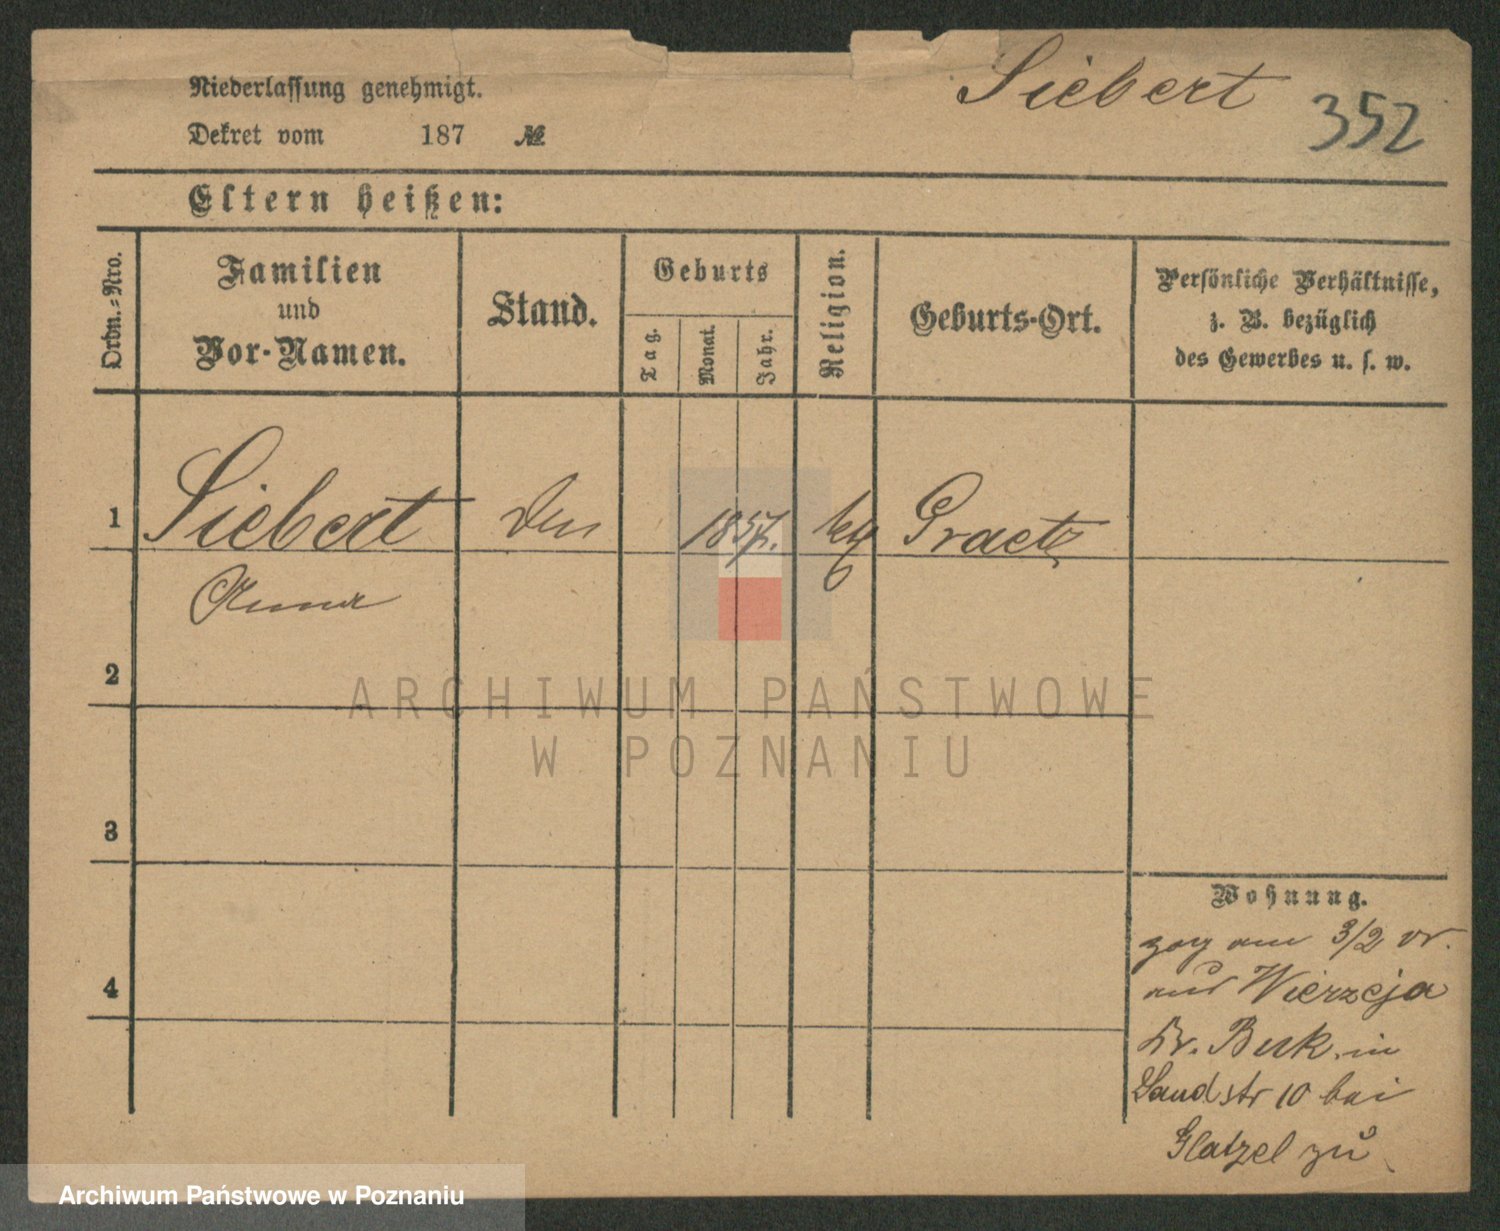 Siebert 352
Niederlassung genehmigt.
Dekret vom 187 №
Eltern heißen:
Ordn.-Nro.
Familien
und
Vor-Namen.
Stand.
Geburts
Tag.
Monat.
Jahr.
Religion.
Geburts-Ort.
Persönliche Verhältnisse,
z. B. bezüglich
des Gewerbes u. s. w.
1 Siebert 1857. Graetz
Anna
2
3
4
Wohnung.
zog am 3/2 cr.
aus Wierzeja
Kr. Buk in
Sandstr 10 bei
Glatzel zu
ARCHIWUM PAŃSTWOWE
W POZNANIU
Archiwum Państwowe w Poznaniu